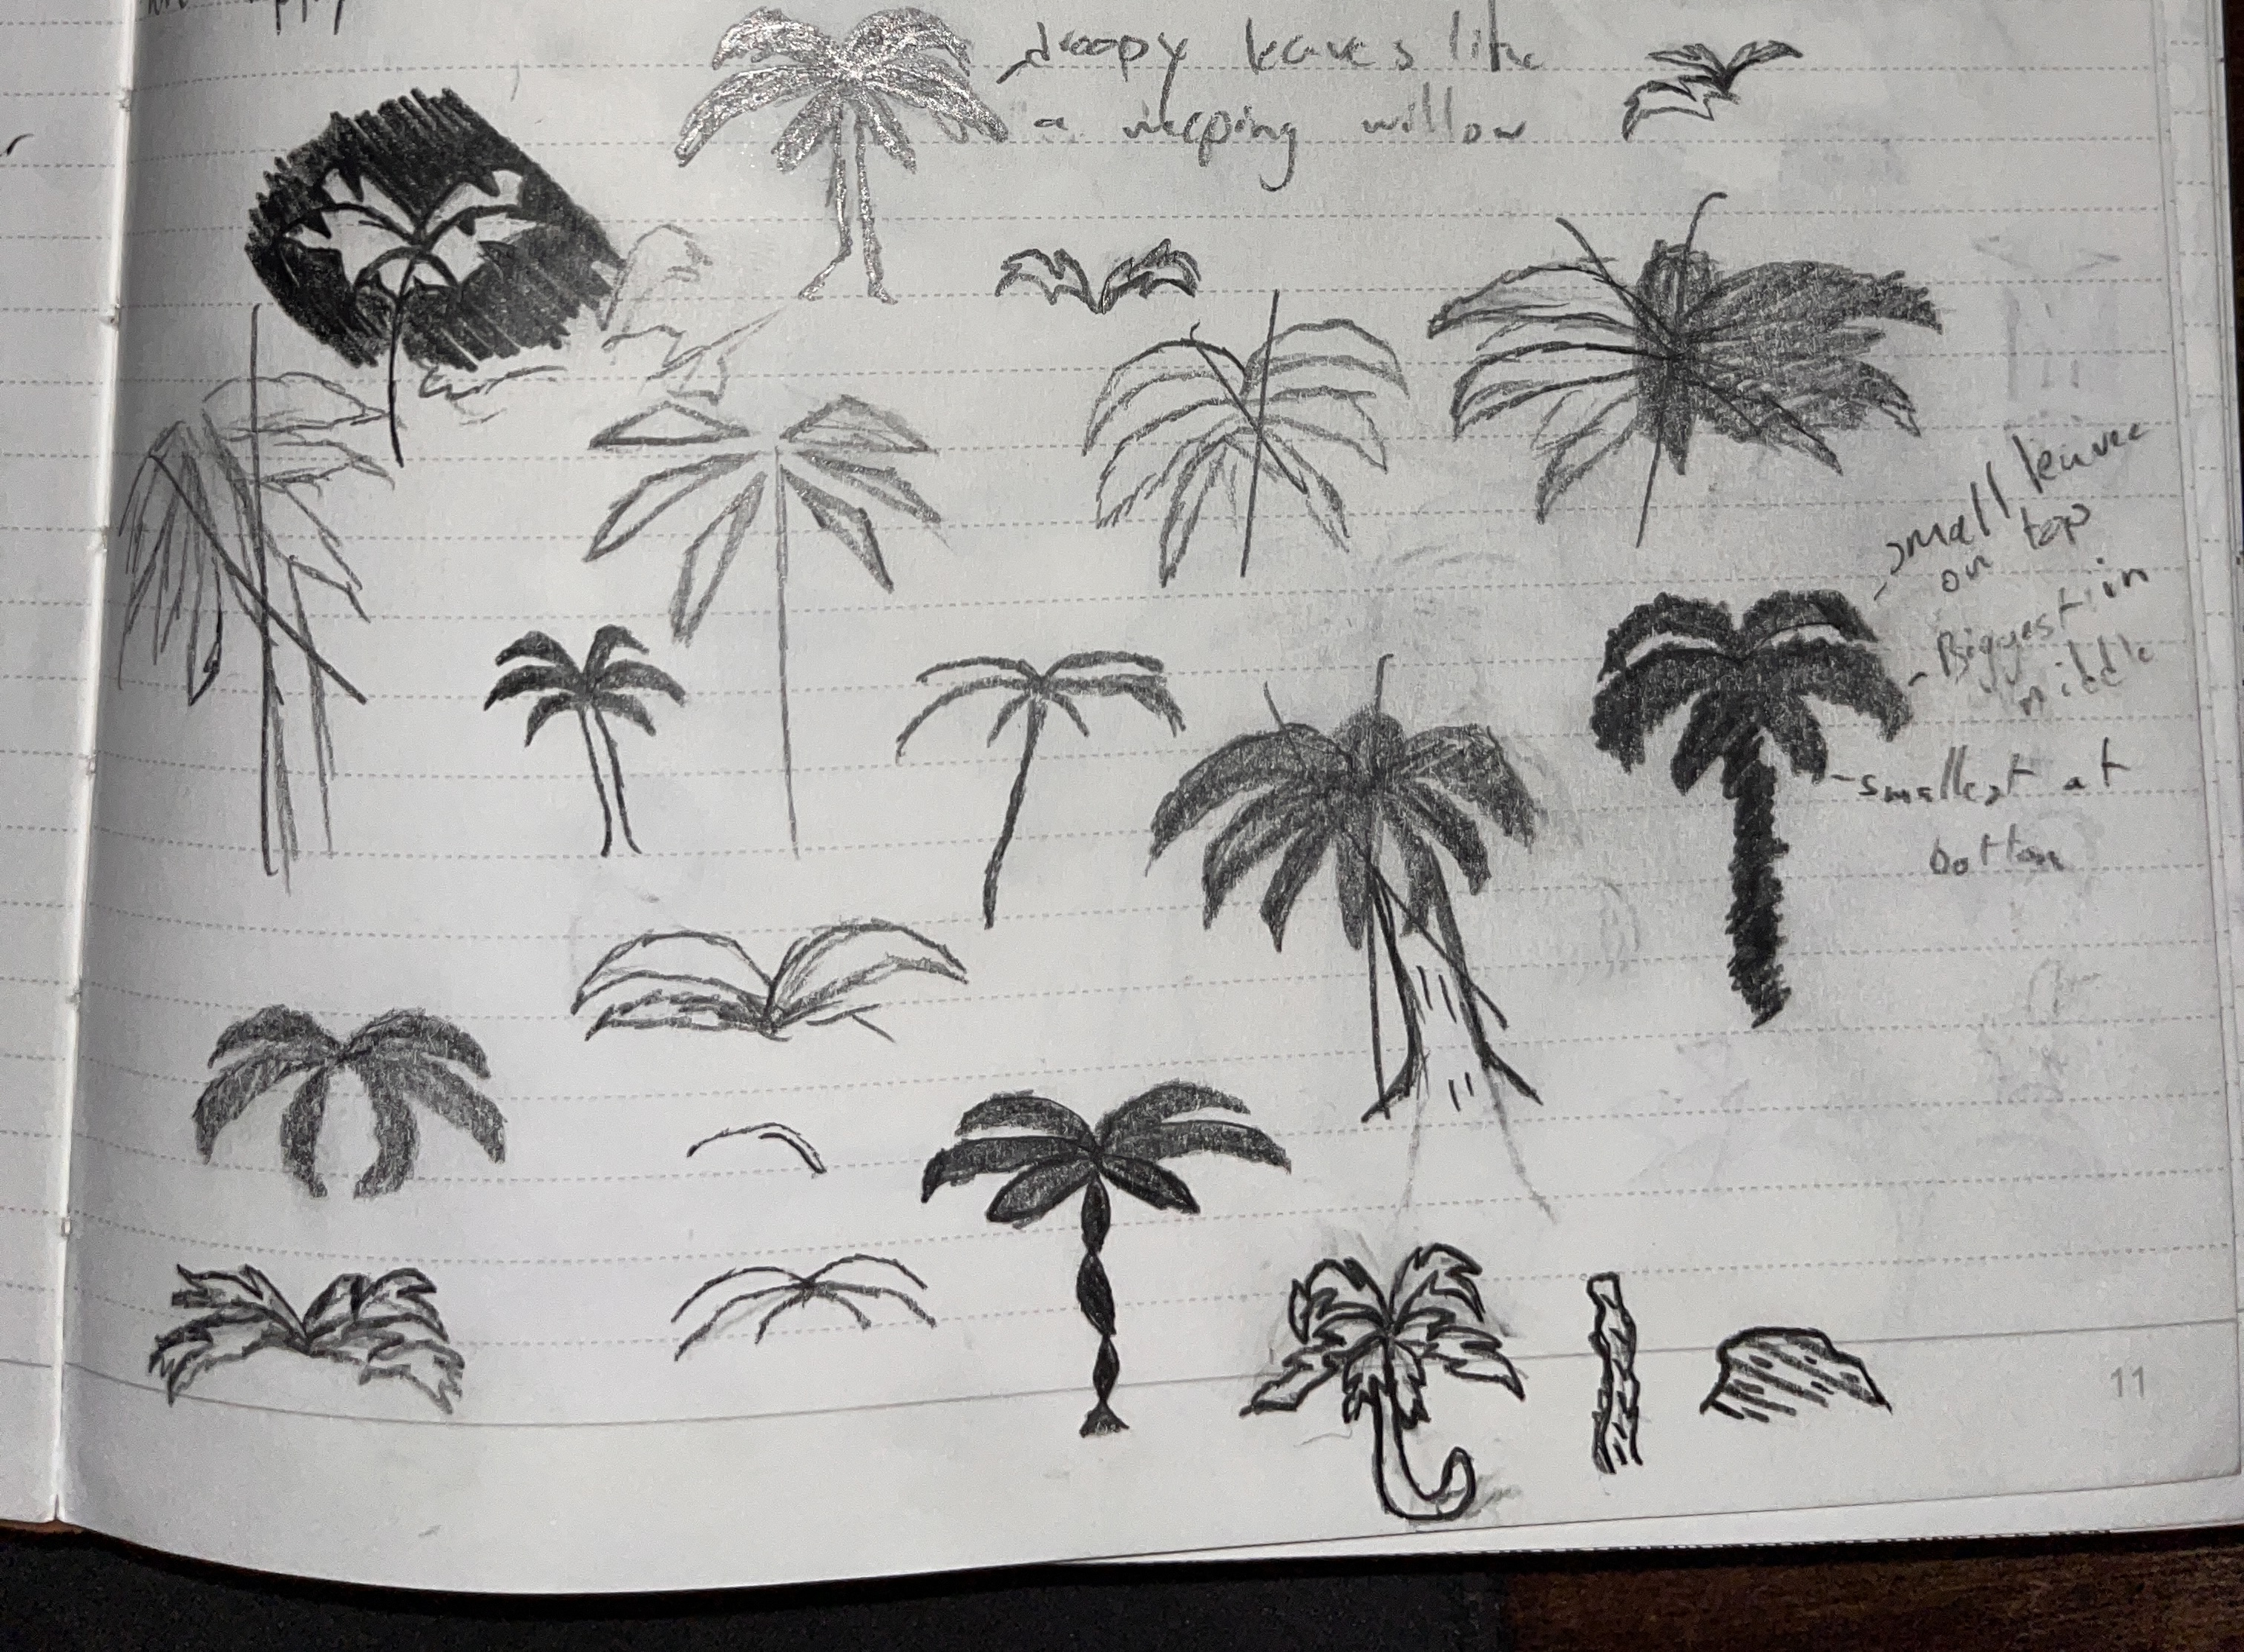 droopy leaves like
a weeping willow
small leaves
on top
Biggest in
middle
smallest at
bottom
11